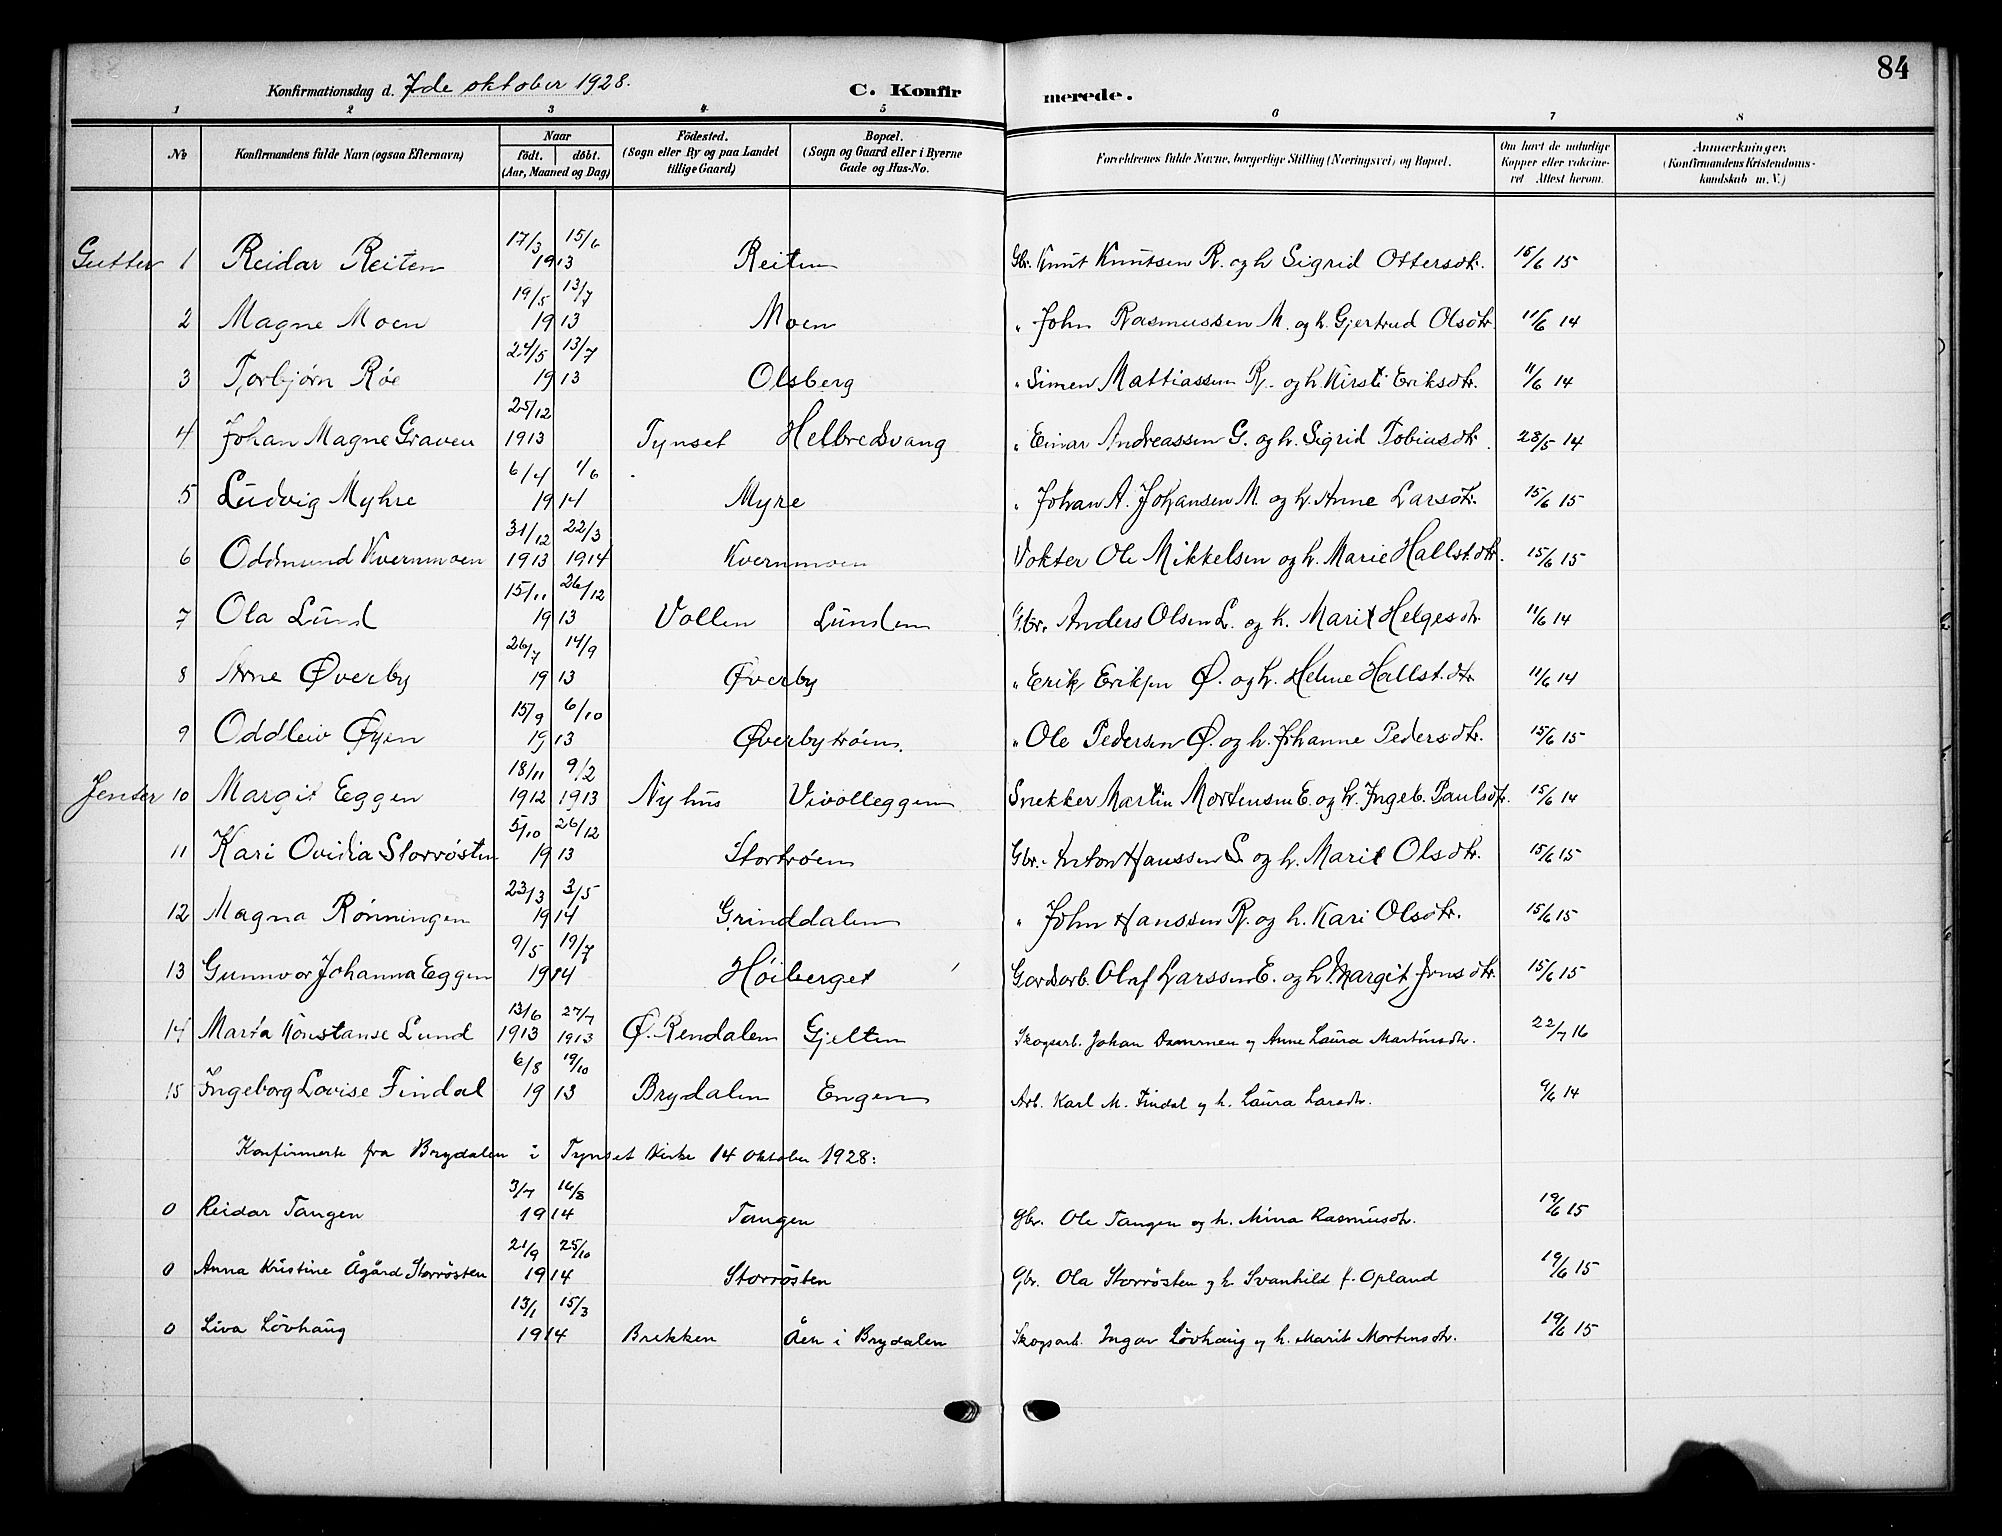 84
Konfirmationsdag d. 7de oktober 1928. C. Konfirmerede.
1 2 3 4 5 6 7 8
No Konfirmandens fulde Navn (ogsaa Efternavn) Naar födt. döbt. (Aar, Maaned og Dag) Födested. (Sogn eller By og paa Landet tillige Gaard) Bopæl. (Sogn og Gaard eller i Byerne Gade og Hus-No. Forældrenes fulde Navne, borgerlige Stilling (Næringsvei) og Bopæl. Om havt de naturlige Kopper eller vakcineret Attest herom. Anmærkninger. (Konfirmandens Kristendomskundskab m. V.)
Gutter 1 Reidar Reiten 17/3 15/6 1913 Reiten Gbr. Knut Knutsen R. og h Sigrid Ottersdtr. 15/6 15
2 Magne Moen 19/5 13/7 1913 Moen " John Rasmussen M. og h. Gjertrud Olsdtr. 11/6 14
3 Torbjørn Røe 24/5 13/7 1913 Olsberg " Simen Mattiassen R. og h. Kirsti Eriksdtr. 11/6 14
4 Johan Magne Graven 25/12 1913 Tynset Helbredsvang " Einar Andreassen G. og h. Sigrid Tobiasdtr. 28/5 14
5 Ludvig Myhre 6/4 1/6 1914 Myre " Johan A. Johansen M. og h. Anne Larsdtr. 15/6 15
6 Oddmund Kvernmoen 31/12 1913 22/3 1914 Kvernmoen Vokter Ole Mikkelsen og h. Marie Hallst.dtr. 15/6 15
7 Ola Lund 15/11 26/12 1913 Vollen Lunden Gbr. Anders Olsen L. og h. Marit Helgesdtr. 11/6 14
8 Arne Øverby 26/7 14/9 1913 Øverby " Erik Eriksen Ø. og h. Helene Hallst.dtr. 11/6 14
9 Oddleiv Øyen 15/9 6/10 1913 Øverbytrøen. " Ole Pedersen Ø. og h. Johanne Pedersdtr. 15/6 15
Jenter 10 Margit Eggen 18/11 1912 9/2 1913 Nyhus Vivolleggen Snekker Martin Mortensen E. og h. Ingeb. Paulsdtr. 15/6 14
11 Kari Ovidia Storrøsten 5/10 26/12 1913 Stortrøen Gbr. Anton Hanssen S. og h. Marit Olsdtr. 15/6 15
12 Magna Rønningen 23/3 3/5 1914 Grinddalen " John Hanssen R. og h. Kari Olsdtr. 15/6 15
13 Gunnvor Johanna Eggen 9/5 19/7 1914 Høiberget Gardsarb. Olaf Larssen E. og h. Margit Jonsdtr. 15/6 15
14 Marta Konstanse Lund 13/6 1913 27/7 1913 Ø. Rendalen Gjelten Skogsarb. Johan og Anne Laura Martinsdtr. 22/7 16
15 Ingeborg Lovise Findal 6/8 19/10 1913 Brydalen Engen Arb. Karl M. Findal og h. Laura Larsdtr. 9/6 14
Konfirmerte fra Brydalen i Tynset kirke 14 oktober 1928:
0 Reidar Tangen 3/7 16/8 1914 Tangen Gbr. Ole Tangen og h. Mina Rasmusdtr. 19/6 15
0 Anna Kristine Ågård Storrösten 21/9 25/10 1914 Storrösten Gbr. Ola Storrösten og h. Svanhild f. Opland 19/6 15
0 Liva Lövhaug 13/1 15/3 1914 Brekken Åen i Brydalen Skogsarb. Ingar Lövhaug og h. Marit Mortensdtr. 19/6 15